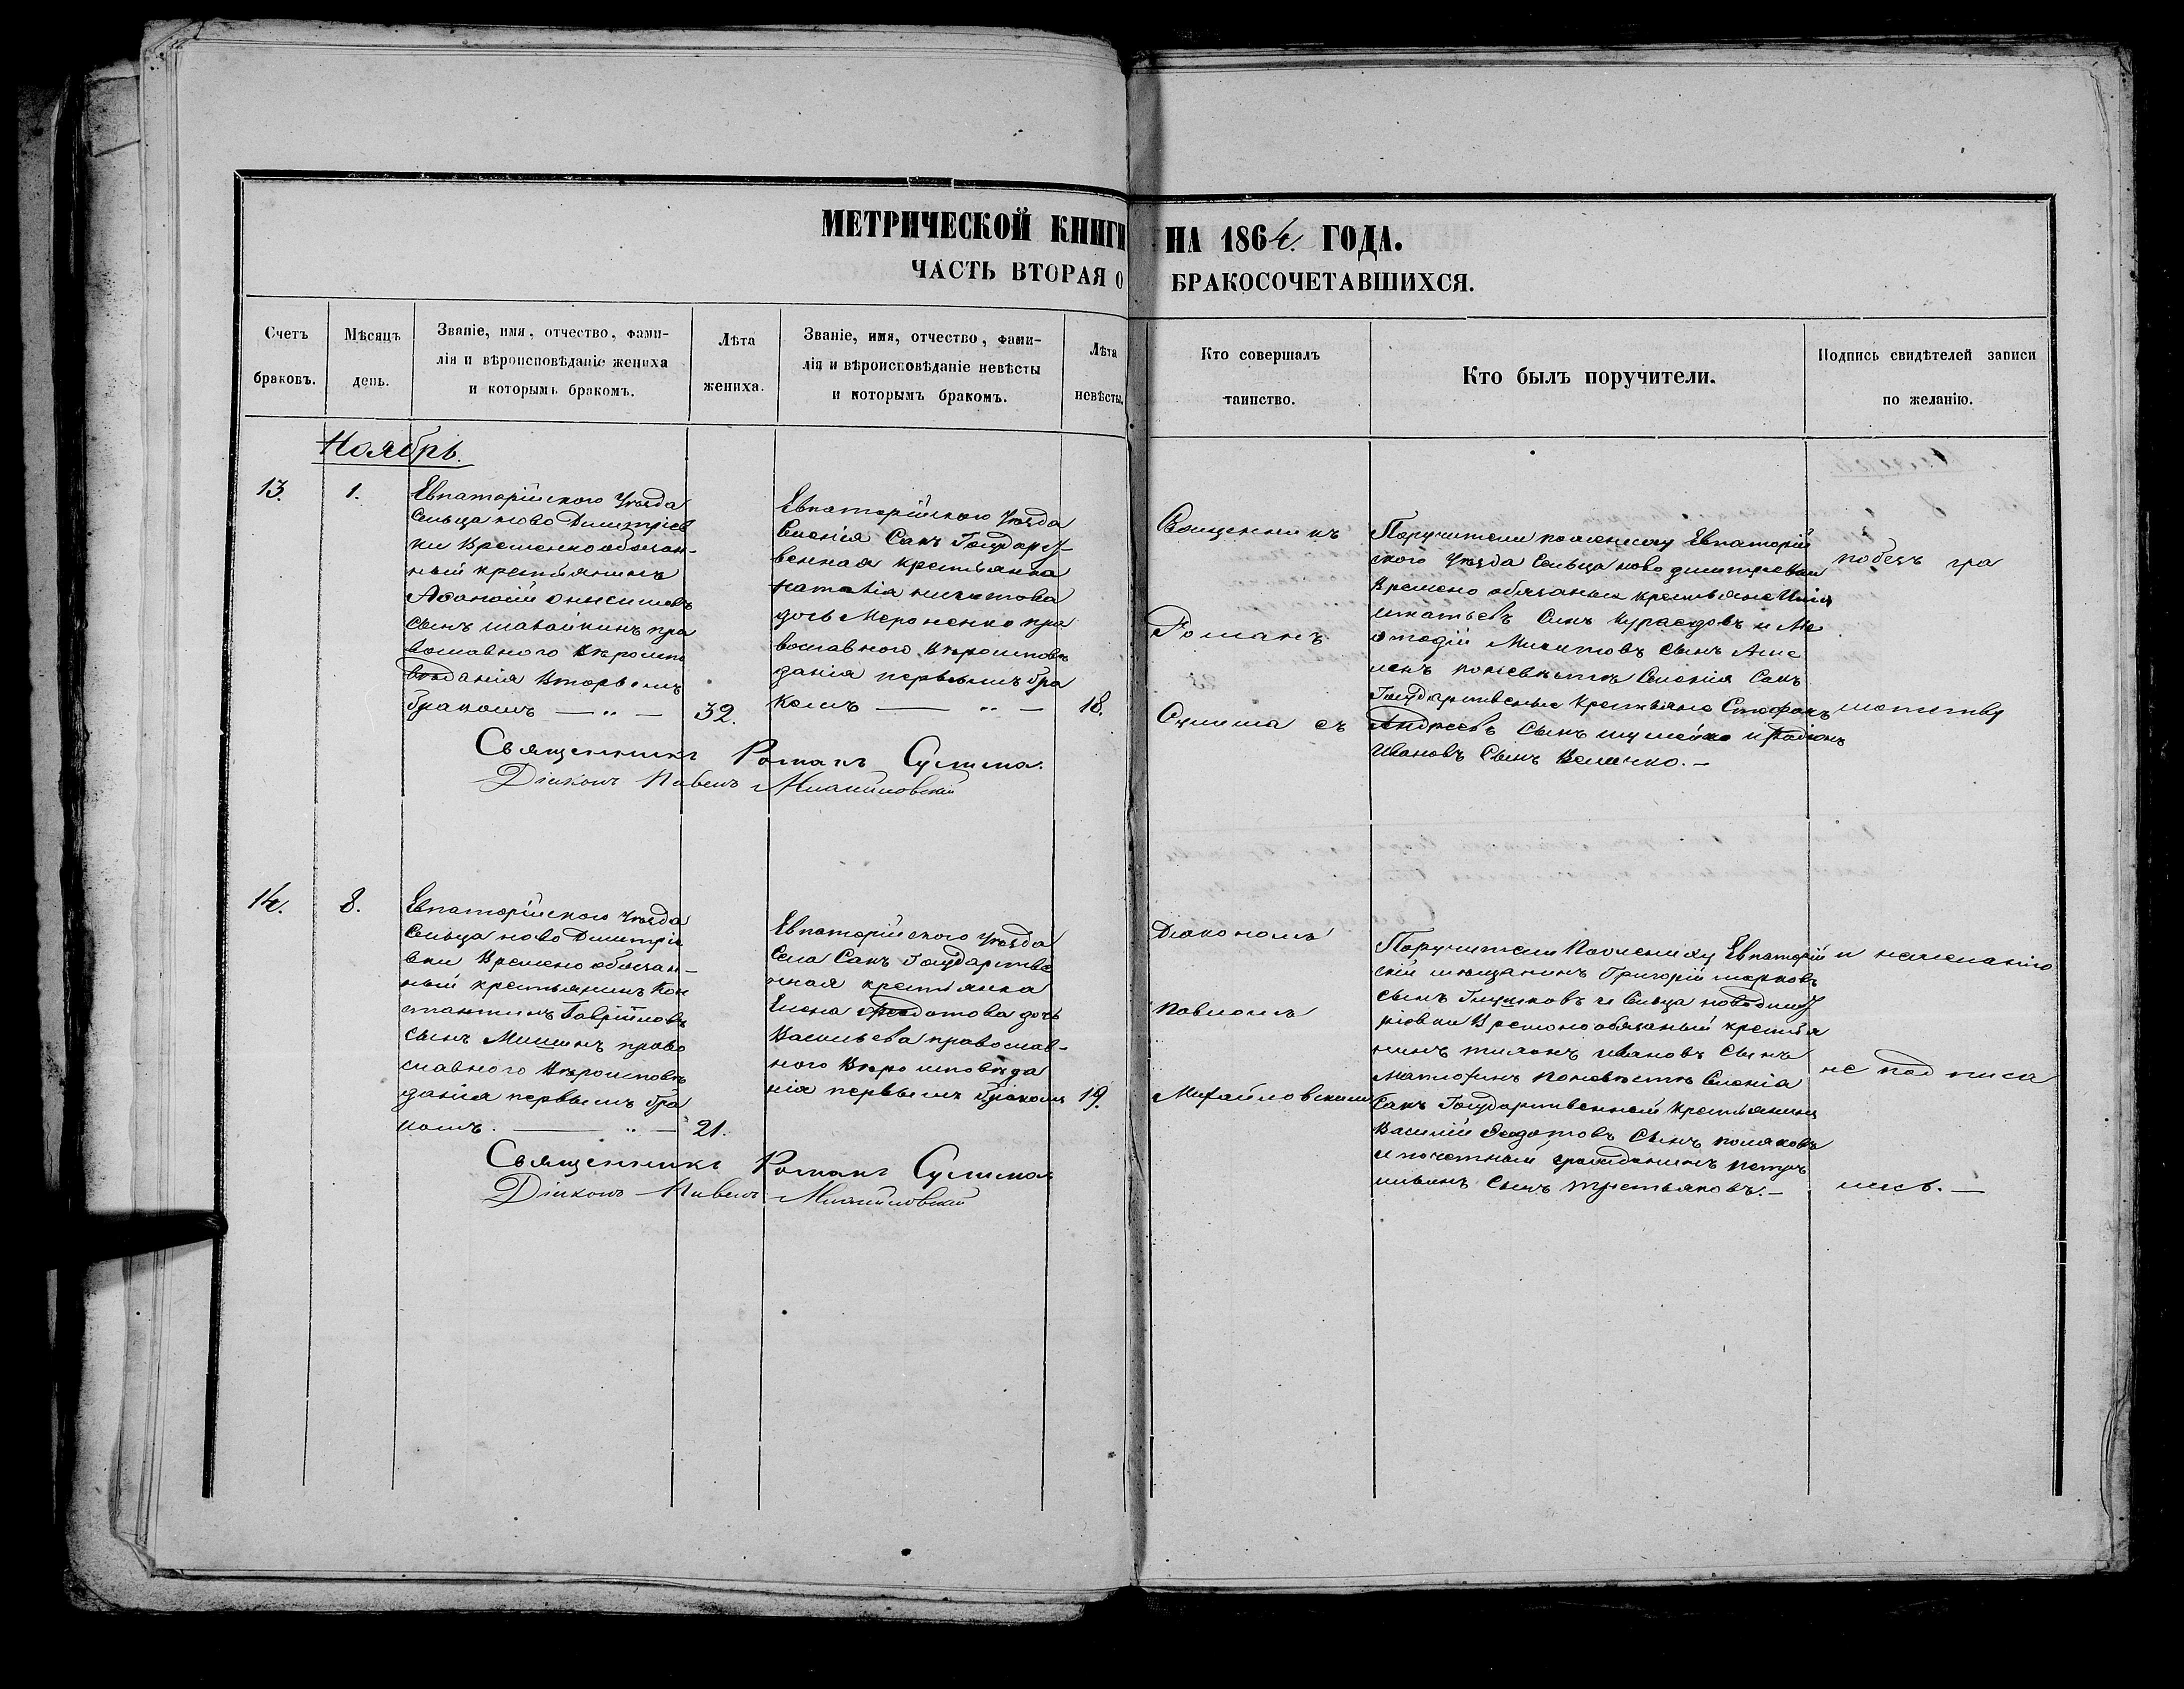 МЕТРИЧЕСКОЙ КНИГИ НА 1864. ГОДА.
ЧАСТЬ ВТОРАЯ О БРАКОСОЧЕТАВШИХСЯ.
Счетъ
браковъ.
Мѣсяцъ
день.
Званіе, имя, отчество, фами-
лія и вѣроисповѣданіе жениха
и которымъ бракомъ.
Лѣта
жениха.
Званіе, имя, отчество, фами-
лія и вѣроисповѣданіе невѣсты
и которымъ бракомъ.
Лѣта
невѣсты.
Кто совершалъ
таинство.
Кто былъ поручители.
Подпись свидѣтелей записи
по желанію.
Ноябрь.
13.
1.
Евпаторійского Уѣзда
Сельца ново Димитріев
ки Временно обязан-
ный крестьянинъ
Афанасій Онисимовъ
сынъ пра
вославного Вѣроисп
вѣданія Вторымъ
бракомъ — „ —
32.
Евпаторійского Уѣзда
Селенія Сакъ Государст-
венная крестьянка
Наталія Никитова
дочь Мироненко пра
вославного Вѣроисповѣ
данія первымъ бра
комъ — „ —
18.
Священникъ
Романъ
Сулима съ
Поручители по жениху Евпаторій
ского Уѣзда Сельца ново
Времено обязаные крестьяне
Сынъ и Ме
фодій Никитовъ сынъ
по невѣстѣ Селенія Сакъ
Государственые крестьяне Стефанъ
Андреевъ Сынъ и Родіонъ
Ивановъ Сынъ Величко. —
по безъ гра
мотству
Священникъ Романъ Сулима.
Діаконъ Павелъ Михайловскій
14.
8.
Евпаторійского Уѣзда
Сельца ново Димитріе
вки Времено обязан-
ный крестьянинъ Кон
стантинъ Гавріиловъ
сынъ Мишинъ право
славного Вѣроисповѣ
данія первымъ бра
комъ. — „ —
21.
Евпаторійского Уѣзда
Села Сакъ Государстве
нная крестьянка
Елена Феодотова дочь
Васильева православ-
ного Вѣроисповѣда
нія первымъ бракомъ
19.
Діакономъ
Павломъ
Михайловскимъ
Поручители По жениху Евпаторій
скій мѣщанинъ Григорій Марковъ
сынъ и Сельца новодимит
ріовки Временообязаный крестья
нинъ Ивановъ Сынъ
по невѣстѣ Селенія
Сакъ Государственный крестьянинъ
Василій Феодотовъ Сынъ Поляковъ
и почетный гражданинъ Петръ
Ильинъ Сынъ Третьяковъ. —
и нежеланію
не подписа
лись. —
Священникъ Романъ Сулима
Діаконъ Павелъ Михайловскій